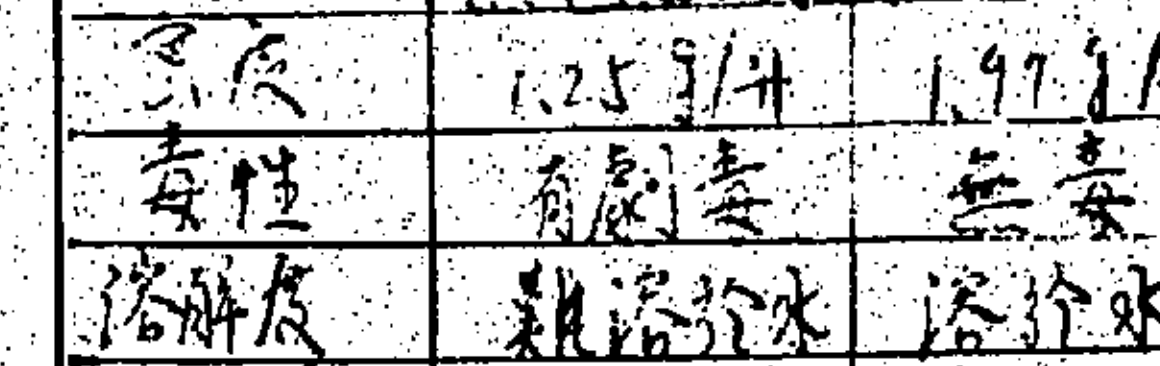 密度 1.25 g/升 1.97 g/
毒性 有劇毒 無毒
溶解度 難溶於水 溶於水